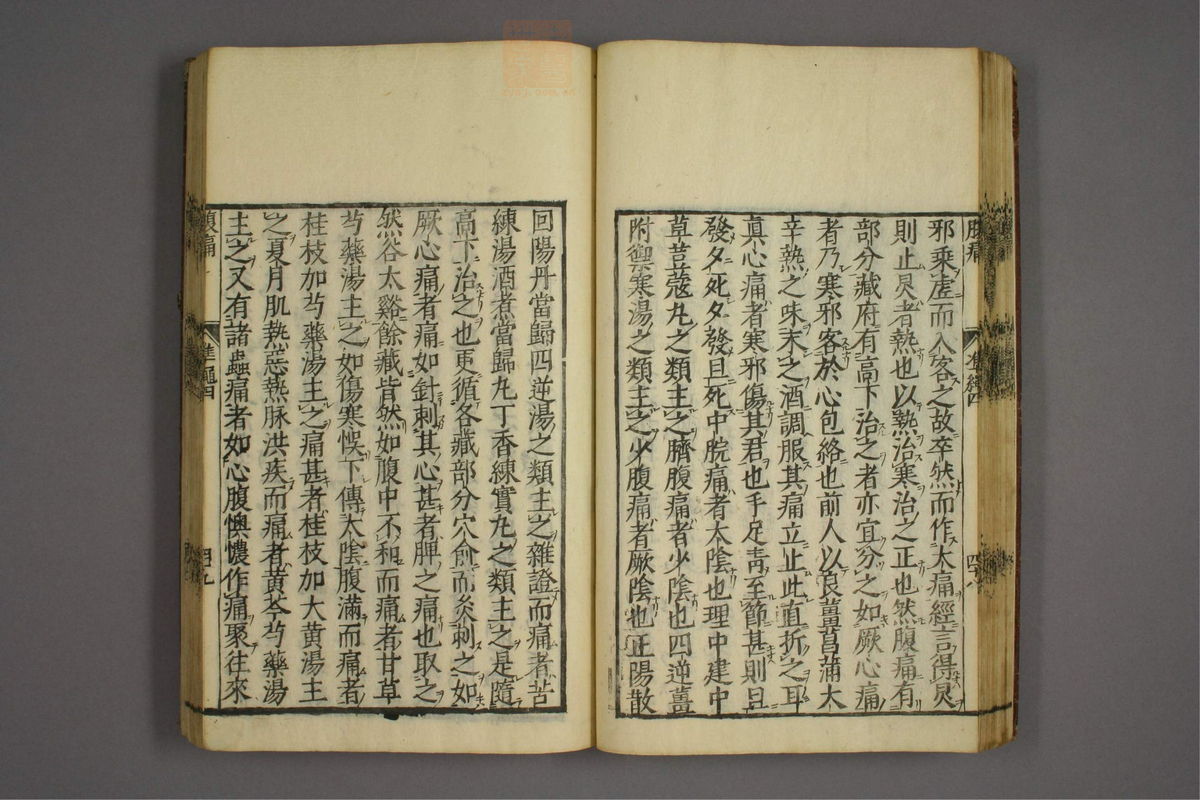 邪乘虚而入客之故卒然而作大痛經言得炅
則止炅者熱也以熱治寒治之正也然腹痛有
部分藏府有高下治之者亦宜分之如厥心痛
者乃寒邪客於心包絡也前人以良薑菖蒲大
辛熱之味末之酒調服其痛立止此直折之耳
真心痛者寒邪傷其君也手足靑至節甚則旦
發夕死夕發旦死中脘痛者太陰也理中建中
草荳蔻丸之類主之臍腹痛者少陰也四逆薑
附禦寒湯之類主之少腹痛者厥陰也正陽散
回陽丹當歸四逆湯之類主之雜證而痛者苦
練湯酒煮當歸丸丁香練實丸之類主之是隨
高下治之也更循各藏部分穴俞而灸刺之如
厥心痛者痛如針刺其心甚者脾之痛也取之
然谷太谿餘藏皆然如腹中不和而痛者甘草
芍藥湯主之如傷寒悞下傳太陰腹滿而痛者
桂枝加芍藥湯主之痛甚者桂枝加大黄湯主
之夏月肌熱惡熱脉洪疾而痛者黄芩芍藥湯
主之又有諸蟲痛者如心腹懊憹作痛聚往來
腹痛
準繩四
四九